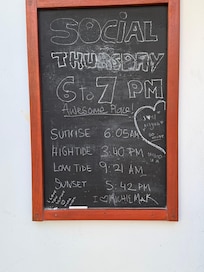 SOCIAL
THURSDAY
6 to 7 PM
Awesome Place!
SUNRISE 6:05 AM
HIGHTIDE 3:40 PM
LOW TIDE 9:21 AM
SUNSET 5:42 PM
I ♡ MICHIEMAK